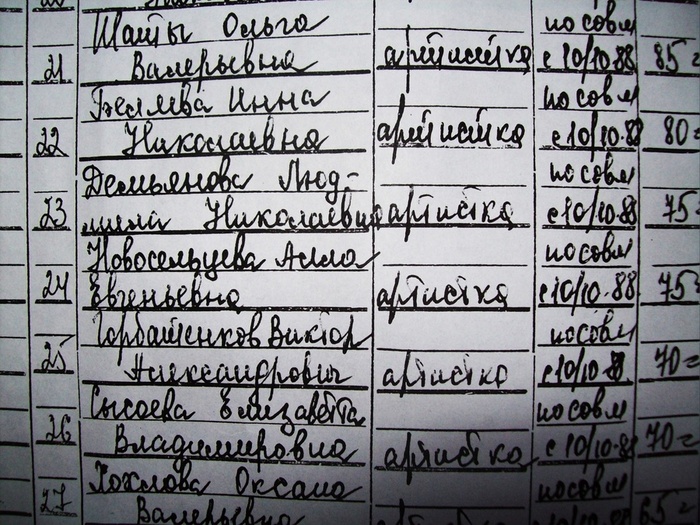 Шатты Ольга по совм
21 Валерьевна артистка с 10/10-88 85=
Беляева Инна по совм
22 Николаевна артистка с 10/10-88 80=
Демьянова Люд- по совм
23 мила Николаевна артистка с 10/10-88 75=
Новосельцева Алла по совм
24 Евгеньевна артистка с 10/10-88. 75=
Горбатенков Виктор по совм
25 Александрович артистка с 10/10-88 70=
Сысоева Елизаветта по совм
26 Владимировна артистка с 10/10-88 70=
Хохлова Оксана по совм
27 Валерьевна 65=